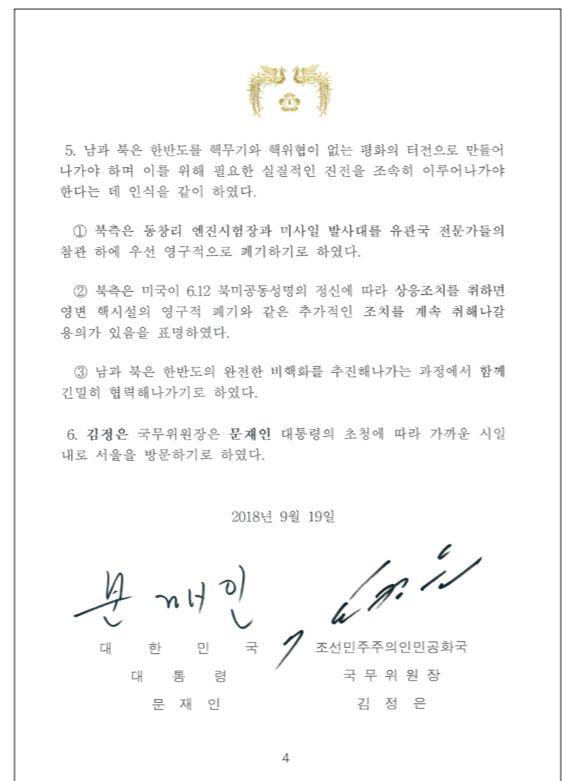 5. 남과 북은 한반도를 핵무기와 핵위협이 없는 평화의 터전으로 만들어
나가야 하며 이를 위해 필요한 실질적인 진전을 조속히 이루어나가야
한다는 데 인식을 같이 하였다.
① 북측은 동창리 엔진시험장과 미사일 발사대를 유관국 전문가들의
참관 하에 우선 영구적으로 폐기하기로 하였다.
② 북측은 미국이 6.12 북미공동성명의 정신에 따라 상응조치를 취하면
영변 핵시설의 영구적 폐기와 같은 추가적인 조치를 계속 취해나갈
용의가 있음을 표명하였다.
③ 남과 북은 한반도의 완전한 비핵화를 추진해나가는 과정에서 함께
긴밀히 협력해나가기로 하였다.
6. 김정은 국무위원장은 문재인 대통령의 초청에 따라 가까운 시일
내로 서울을 방문하기로 하였다.
2018년 9월 19일
문재인
대 한 민 국
대 통 령
문 재 인
김정은
조선민주주의인민공화국
국 무 위 원 장
김 정 은
4